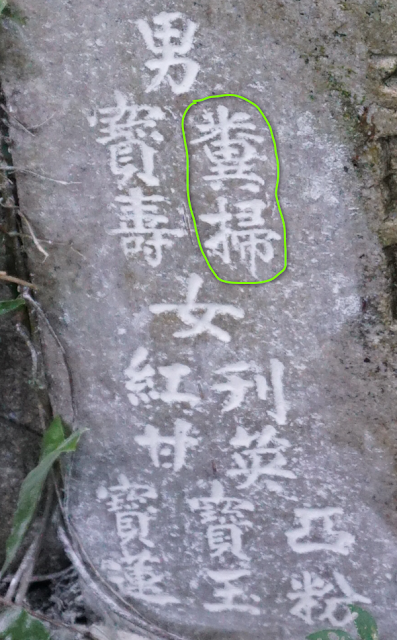 男
糞掃
寶壽
女
刋英
紅甘
凸粉
寶玉
寶蓮